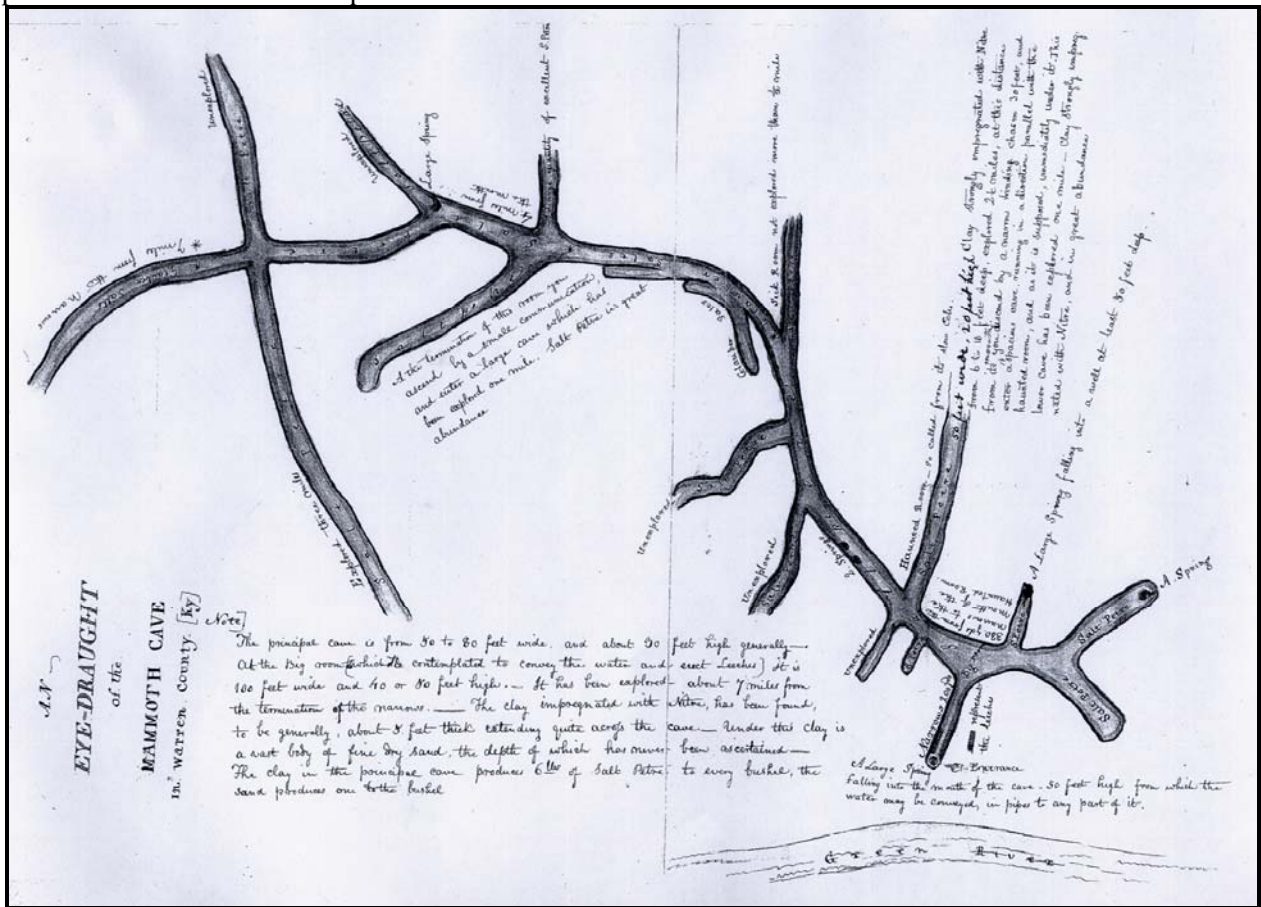 AN
EYE-DRAUGHT
of the
MAMMOTH CAVE
in Warren County. [Ky]
Note]
The principal cave is from 50 to 80 feet wide, and about 90 feet high generally—
At the Big room (which contemplated to convey the water and erect Leeches) It is
100 feet wide and 40 or 50 feet high. — It has been explored about 7 miles from
the termination of the narrows. — The clay impregnated with Nitre, has been found,
to be generally, about 5 feet thick extending quite across the cave — Under this clay is
a vast body of fine dry sand, the depth of which has never been ascertained —
The clay in the principal cave produces 6 lbs of Salt Petre to every bushel, the
sand produces one to the bushel
Unexplored
* 7 miles from
the Narrows
Explored three miles
Unexplored
Large Spring
4 miles from
the mouth
quantity of excellent S. Petre
At the termination of this room you
ascend by a small communication,
and enter a large cave which has
been explored one mile. Salt Petre in great
abundance
Glauber Salts
Sick Room not explored more than ½ mile
Unexplored
Unexplored
2 Springs
Haunted Room — So called from its slow Echo.
50 feet wide, 20 feet high Clay strongly impregnated with Nitre
from 6 to 10 feet deep explored 2½ miles, at this distance
from its mouth you descend by a narrow winding chasm 30 feet, and
enter a spacious cave, running in a direction parallel with the
haunted room, and as it is supposed, immediately under it. This
lower Cave has been explored one mile — Clay strongly impreg-
nated with Nitre, and in great abundance
Unexplored
330 yds from the
narrows to the
mouth of the
Haunted Room
A Large Spring falling into a well at least 30 feet deep
A Spring
Salt Petre
Salt Petre
Narrows
represent
the leeches
Entrance
A Large Spring
Falling into the mouth of the cave — 50 feet high from which the
water may be conveyed, in pipes to any part of it.
Green River